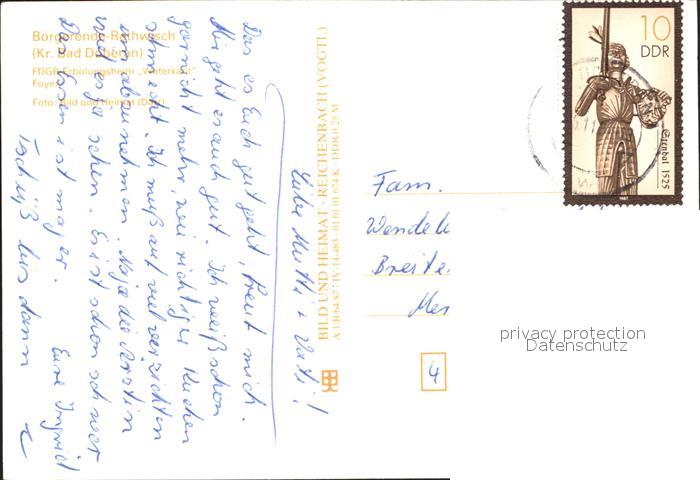 Börgerende-Rethwisch
(Kr. Bad Doberan)
FDGB-Erholungsheim „Waterkant“
Foyer
Foto: Bild und Heimat
BILD UND HEIMAT · REICHENBACH (VOGTL)
A 1/B 84/87 IV-14-483 01 01 01 674 K DDR 0,25 M
Liebe Mutti + Vati!
Das es Euch gut geht, freut mich.
Mir geht es auch gut. Ich weiß schon
garnicht mehr, wie richtiger Kuchen
schmeckt. Ich muß auf viel verzichten
um abzunehmen. Na ja die Ärztin
will es ja sehen. Es ist schon schwer
Das Essen ist mager.
Eure Ingrid
Tschüß bis dann
Fam.
Wendel
Breite
Mer
4
10
DDR
Stendal 1525
1987
privacy protection
Datenschutz